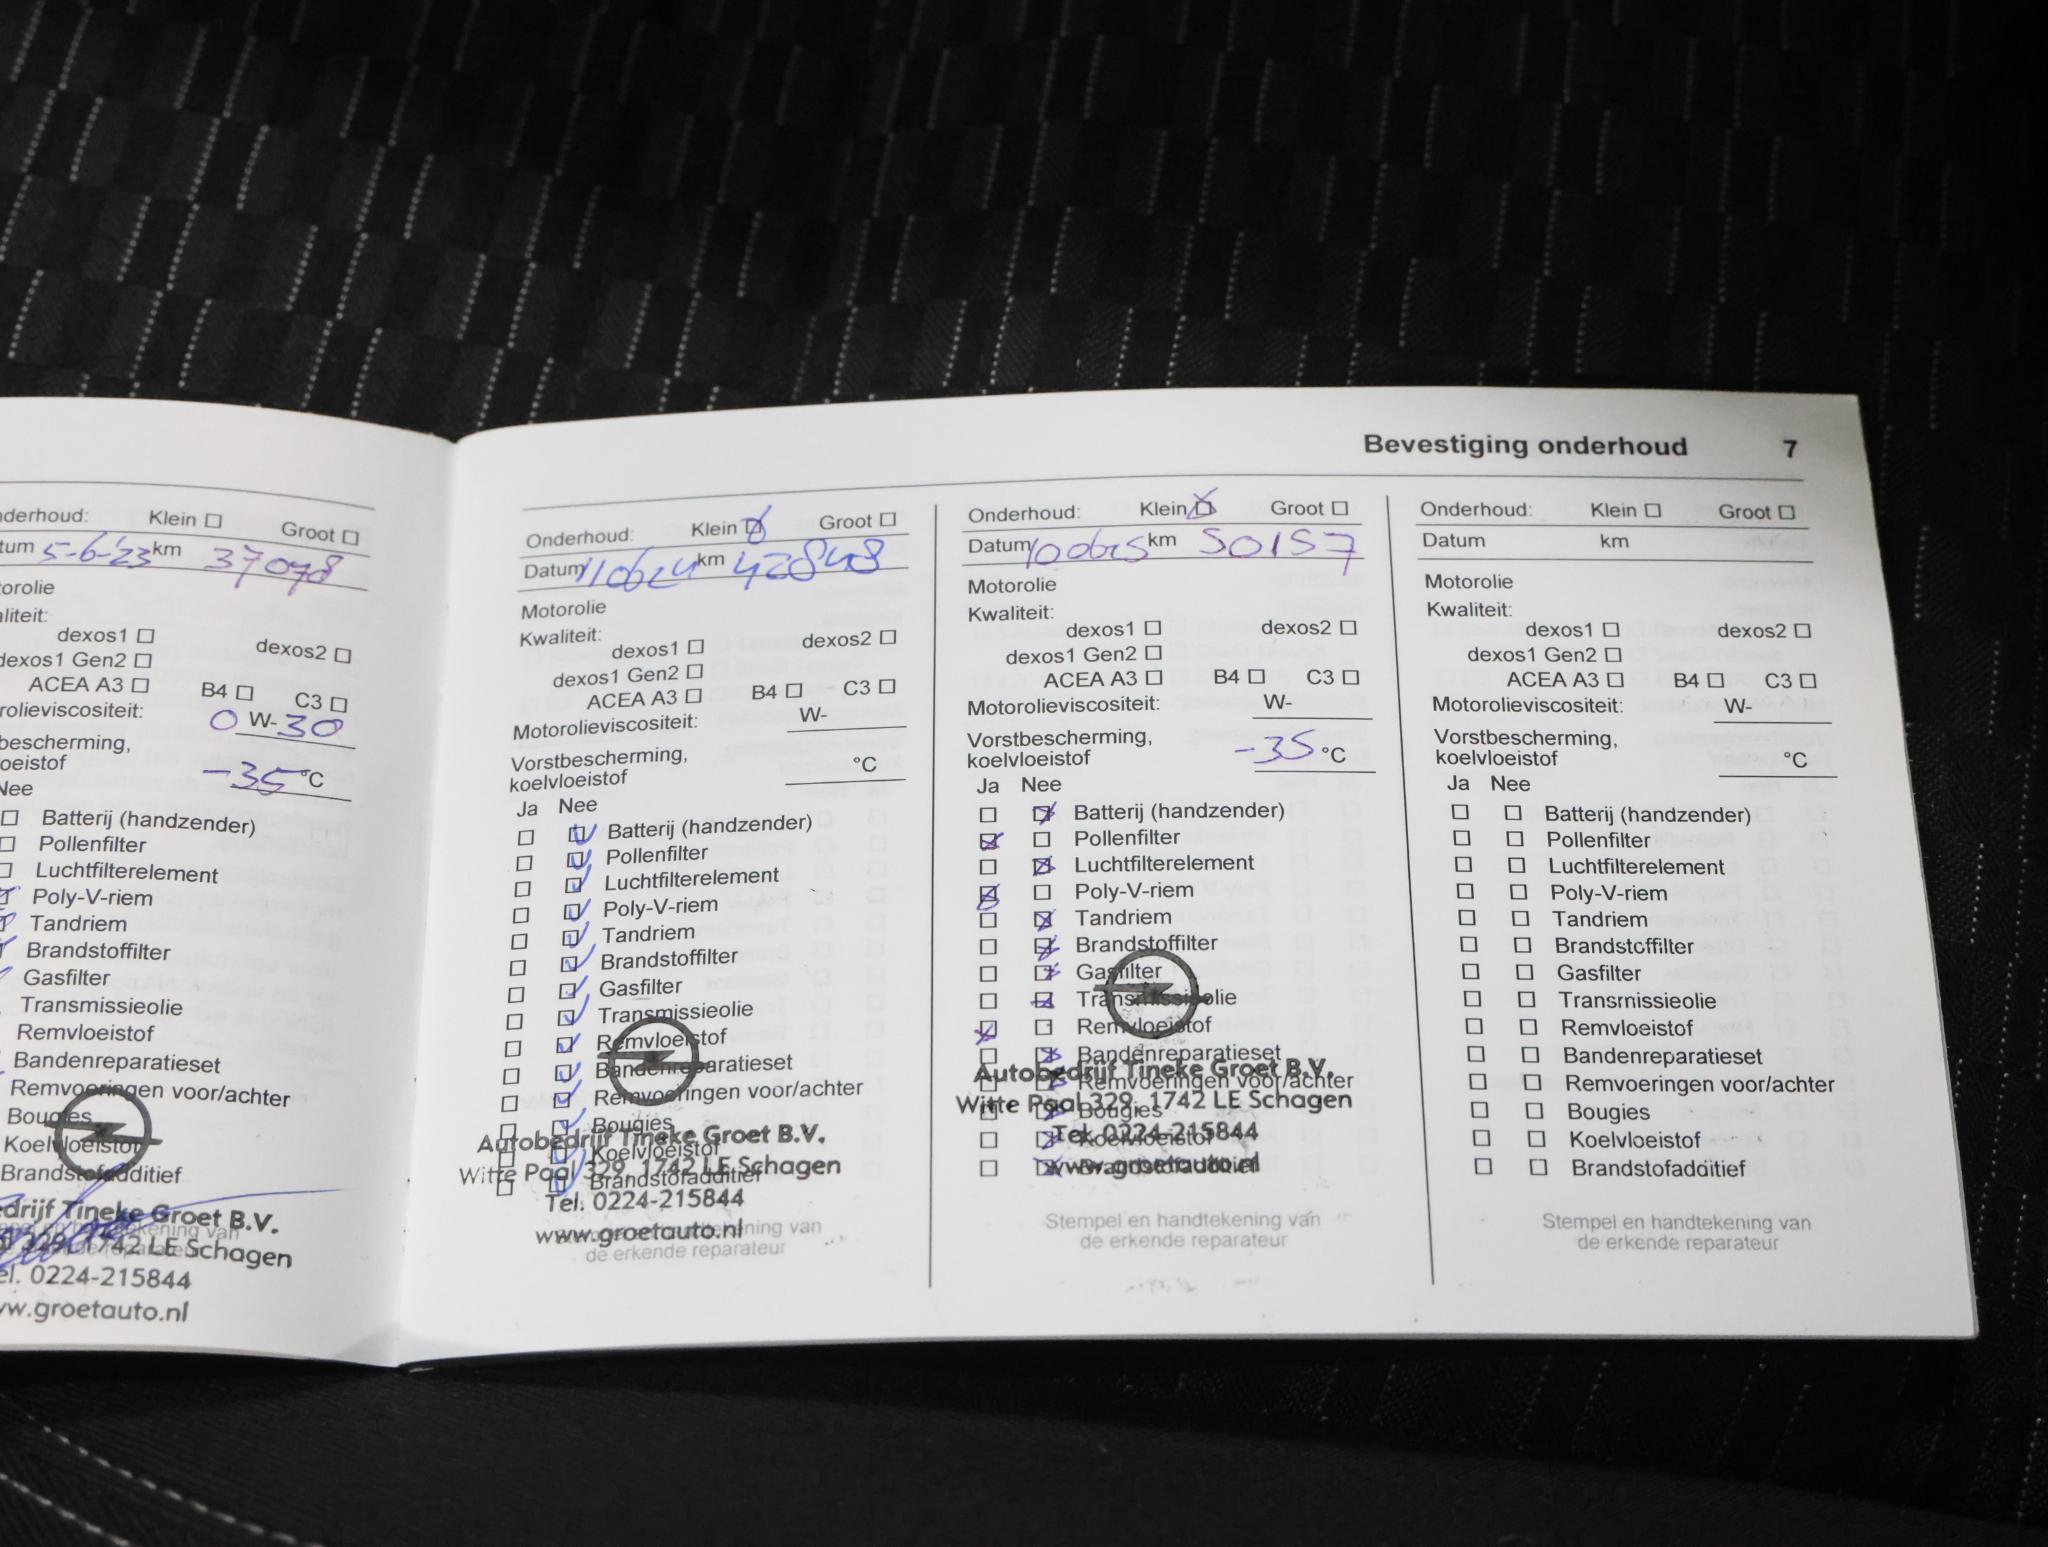 Bevestiging onderhoud 7
nderhoud: Klein Groot
tum 5-6-'23 km 37078
orolie
aliteit:
dexos1 dexos2
dexos1 Gen2
ACEA A3 B4 C3
rolieviscositeit: 0 W-30
bescherming,
oeistof -35 °C
Nee
Batterij (handzender)
Pollenfilter
Luchtfilterelement
Poly-V-riem
Tandriem
Brandstoffilter
Gasfilter
Transmissieolie
Remvloeistof
Bandenreparatieset
Remvoeringen voor/achter
Bougies
Koelvloeistof
Brandstofadditief
edrijf Tineke Groet B.V.
329, 1742 LE Schagen
el. 0224-215844
ww.groetauto.nl
Onderhoud: Klein Groot
Datum 110624 km 42848
Motorolie
Kwaliteit:
dexos1 dexos2
dexos1 Gen2
ACEA A3 B4 C3
Motorolieviscositeit: W-
Vorstbescherming,
koelvloeistof °C
Ja Nee
Batterij (handzender)
Pollenfilter
Luchtfilterelement
Poly-V-riem
Tandriem
Brandstoffilter
Gasfilter
Transmissieolie
Remvloeistof
Bandenreparatieset
Remvoeringen voor/achter
Bougies
Koelvloeistof
Brandstofadditief
Autobedrijf Tineke Groet B.V.
Witte Paal 329, 1742 LE Schagen
Tel. 0224-215844
www.groetauto.nl
Stempel en handtekening van
de erkende reparateur
Onderhoud: Klein Groot
Datum 100625 km 50157
Motorolie
Kwaliteit:
dexos1 dexos2
dexos1 Gen2
ACEA A3 B4 C3
Motorolieviscositeit: W-
Vorstbescherming,
koelvloeistof -35 °C
Ja Nee
Batterij (handzender)
Pollenfilter
Luchtfilterelement
Poly-V-riem
Tandriem
Brandstoffilter
Gasfilter
Transmissieolie
Remvloeistof
Bandenreparatieset
Remvoeringen voor/achter
Bougies
Koelvloeistof
Brandstofadditief
Autobedrijf Tineke Groet B.V.
Witte Paal 329, 1742 LE Schagen
Tel. 0224-215844
www.groetauto.nl
Stempel en handtekening van
de erkende reparateur
Onderhoud: Klein Groot
Datum km
Motorolie
Kwaliteit:
dexos1 dexos2
dexos1 Gen2
ACEA A3 B4 C3
Motorolieviscositeit: W-
Vorstbescherming,
koelvloeistof °C
Ja Nee
Batterij (handzender)
Pollenfilter
Luchtfilterelement
Poly-V-riem
Tandriem
Brandstoffilter
Gasfilter
Transmissieolie
Remvloeistof
Bandenreparatieset
Remvoeringen voor/achter
Bougies
Koelvloeistof
Brandstofadditief
Stempel en handtekening van
de erkende reparateur